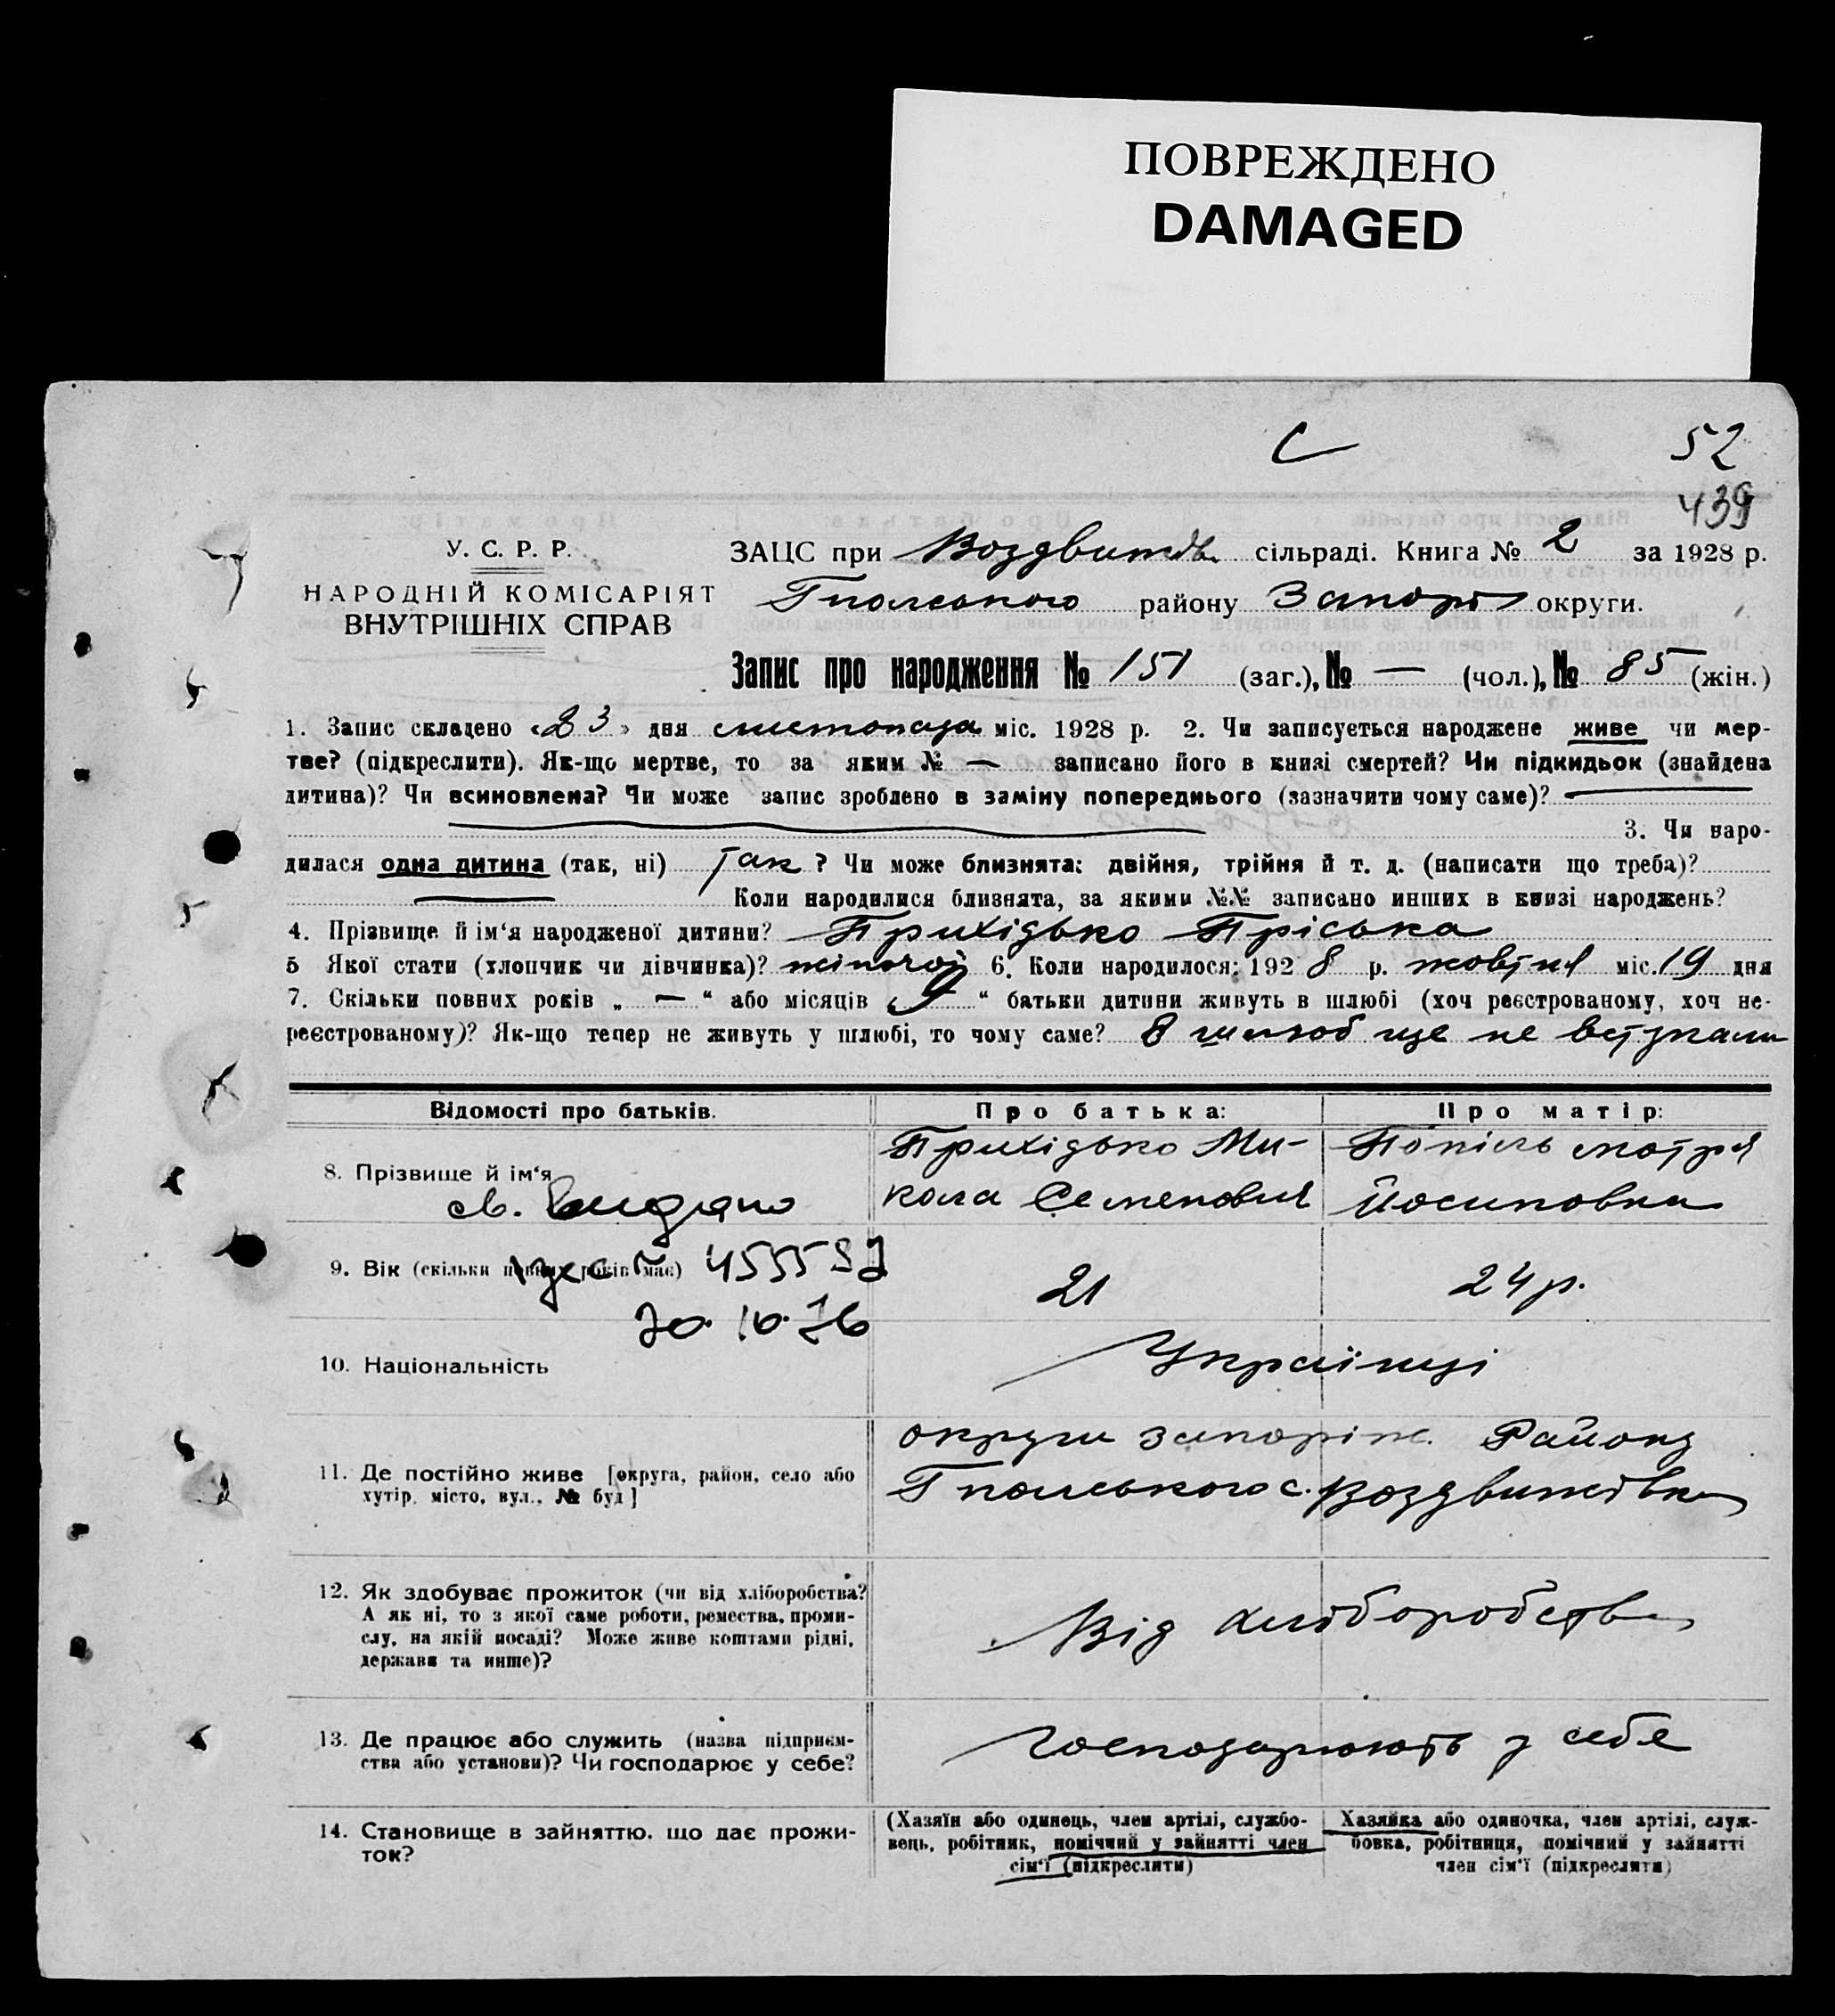 ПОВРЕЖДЕНО
DAMAGED
С
52
439
У. С. Р. Р.
НАРОДНІЙ КОМІСАРІЯТ
ВНУТРІШНІХ СПРАВ
ЗАЦС при Воздвижівс сільраді. Книга № 2 за 1928 р.
Гпольського району Запоріз округи.
Запис про народження № 151 (заг.), № — (чол.), № 85 (жін.)
1. Запис складено «23» дня листопада міс. 1928 р. 2. Чи записується народжене живе чи мер-
тве? (підкреслити). Як-що мертве, то за яким № — записано його в книзі смертей? Чи підкидьок (знайдена
дитина)? Чи всиновлена? Чи може запис зроблено в заміну попереднього (зазначити чому саме)? —
3. Чи наро-
дилася одна дитина (так, ні) так ? Чи може близнята: двійня, трійня й т. д. (написати що треба)?
— Коли народилися близнята, за якими №№ записано инших в книзі народжень?
4. Прізвище й ім‘я народженої дитини? Прихідько Пріська
5 Якої стати (хлопчик чи дівчинка)? жіночої 6. Коли народилося: 1928 р. жовтня міс. 19 дня
7. Скільки повних років „ — “ або місяців „ 9 “ батьки дитини живуть в шлюбі (хоч реєстрованому, хоч не-
реєстрованому)? Як-що тепер не живуть у шлюбі, то чому саме? В шлюб ще не вступали
Відомості про батьків. Про батька: Про матір:
8. Прізвище й ім‘я Прихідько Ми- Попіль мотря
св. выдано кола Семенович Йосиповна
9. Вік (скільки повних років має) 455552 21 24 р.
20.10.76
10. Національність Українці
округи запоріж. Району
11. Де постійно живе [округа, район, село або Гпольського с. Воздвижівка
хутір, місто, вул., № буд]
12. Як здобуває прожиток (чи від хліборобства? Від хліборобства
А як ні, то з якої саме роботи, ремества, проми-
слу, на якій посаді? Може живе коштами рідні,
держави та инше)?
13. Де працює або служить (назва підприєм- господарюють у себе
ства або установи)? Чи господарює у себе?
14. Становище в зайняттю, що дає прожи-
ток?
(Хазяїн або одинець, член артілі, службо-
вець, робітник, помічний у зайнятті член
сім‘ї (підкреслити)
Хазяйка або одиночка, член артілі, служ-
бовка, робітниця, помічний у зайнятті
член сім‘ї (підкреслити)